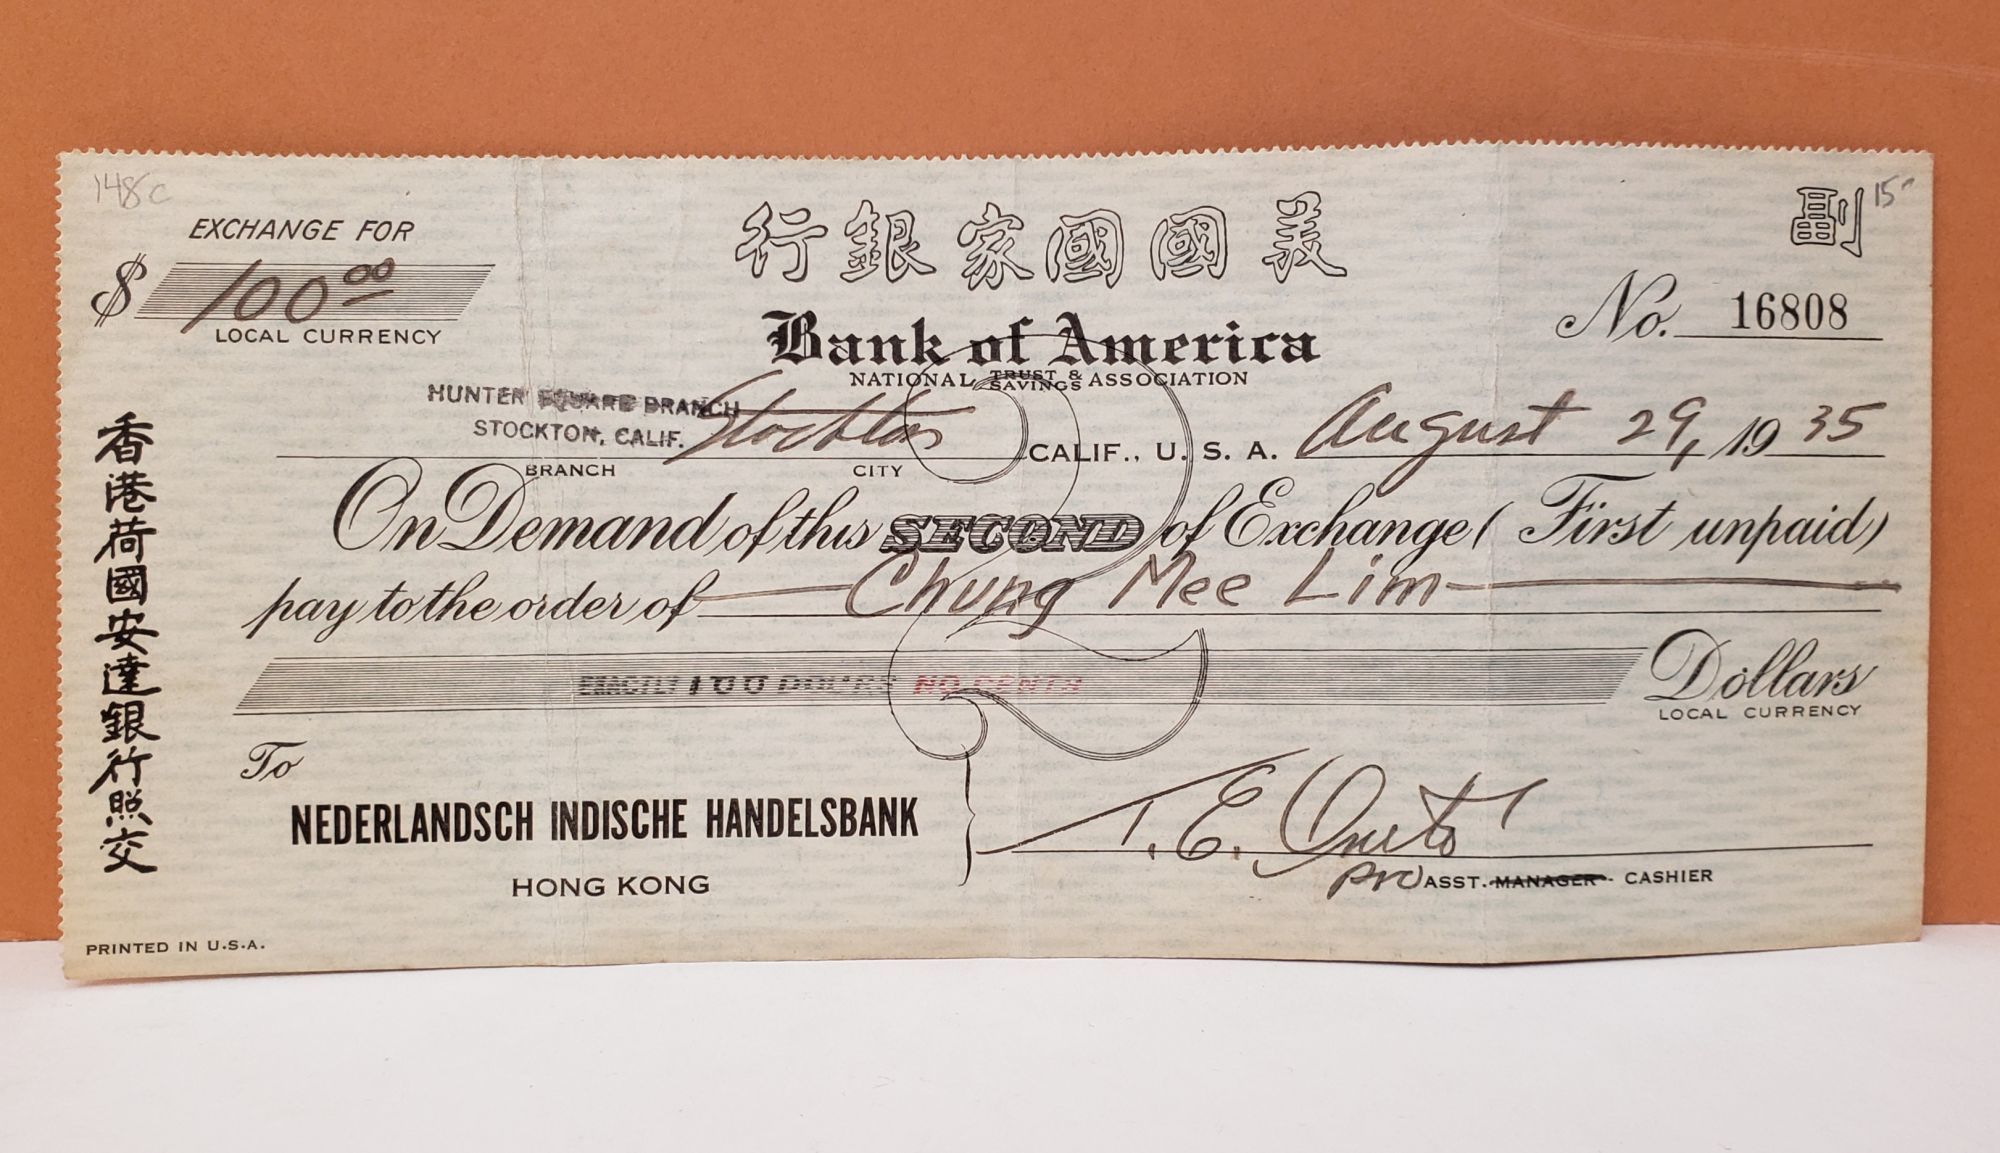 148c
EXCHANGE FOR
$ 100 00
LOCAL CURRENCY
行銀家國國美
副
15
Bank of America
NATIONAL TRUST & SAVINGS ASSOCIATION
No. 16808
HUNTER SQUARE BRANCH
STOCKTON, CALIF.
Stockton CALIF., U. S. A. August 29, 1935
BRANCH CITY
On Demand of this SECOND of Exchange (First unpaid)
pay to the order of Chung Mee Lim
EXACTLY 100 DOL'RS NO CENTS
Dollars
LOCAL CURRENCY
香港荷國安達銀行照交
To
NEDERLANDSCH INDISCHE HANDELSBANK
HONG KONG
T. E.
Pro ASST. MANAGER - CASHIER
PRINTED IN U.S.A.